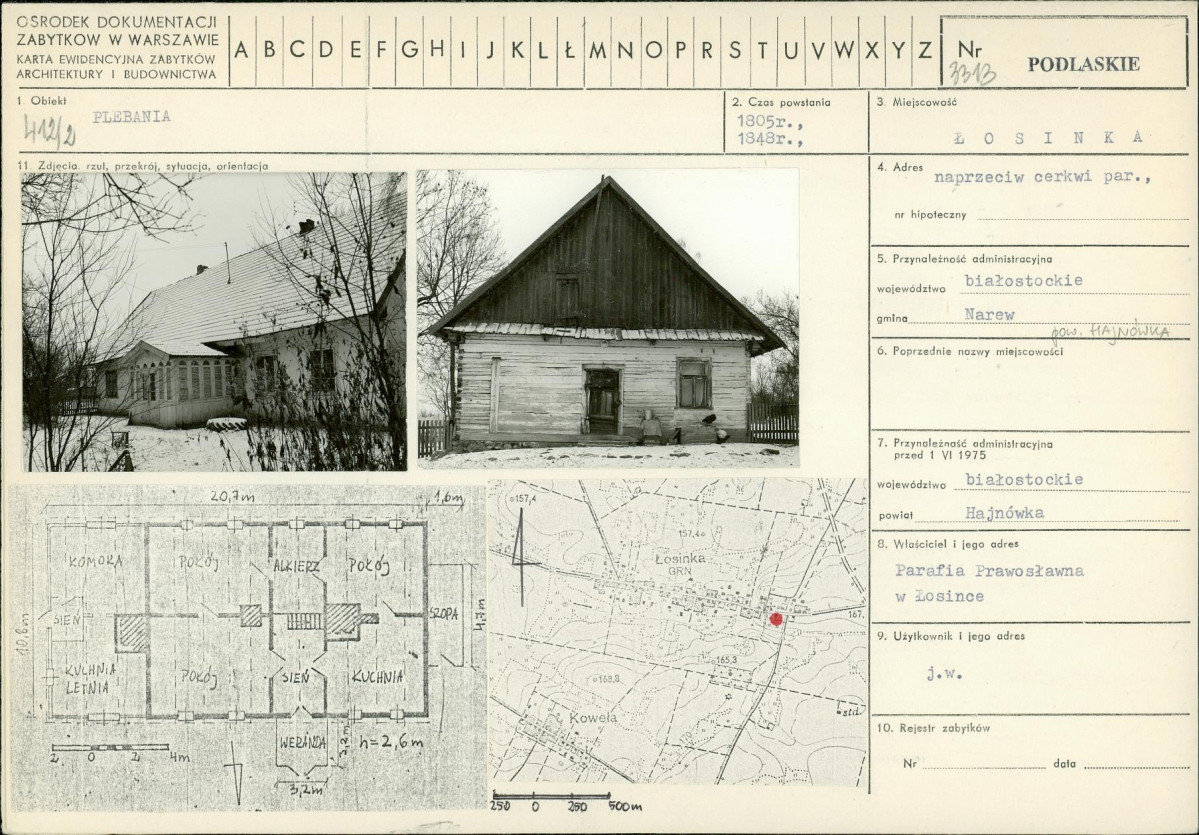 OSRODEK DOKUMENTACJI
ZABYTKOW W WARSZAWIE
KARTA EWIDENCYJNA ZABYTKÓW
ARCHITEKTURY I BUDOWNICTWA
A B C D E F G H I J K L Ł M N O P R S T U V W X Y Z
Nr
3313
PODLASKIE
1. Obiekt
PLEBANIA
412/2
2. Czas powstania
1805r.,
1848r.,
3. Miejscowość
Ł O S I N K A
11. Zdjęcia, rzut, przekrój, sytuacja, orientacja
4. Adres
naprzeciw cerkwi par.,
nr hipoteczny
5. Przynależność administracyjna
województwo białostockie
gmina Narew
pow. HAJNÓWKA
6. Poprzednie nazwy miejscowości
7. Przynależność administracyjna
przed 1 VI 1975
województwo białostockie
powiat Hajnówka
8. Właściciel i jego adres
Parafia Prawosławna
w Łosince
9. Użytkownik i jego adres
j.w.
10. Rejestr zabytków
Nr data
20,7m
1,6m
KOMORA
POKÓJ
ALKIERZ
POKÓJ
SIEŃ
SZOPA
4,7m
10,8m
KUCHNIA
LETNIA
POKÓJ
SIEŃ
KUCHNIA
WERANDA
2,2m
h=2,6m
3,2m
2 0 2 4m
157,4
157,4
Łosinka
GRN
167,
165,3
163,8
Kowela
std.
250 0 250 500m